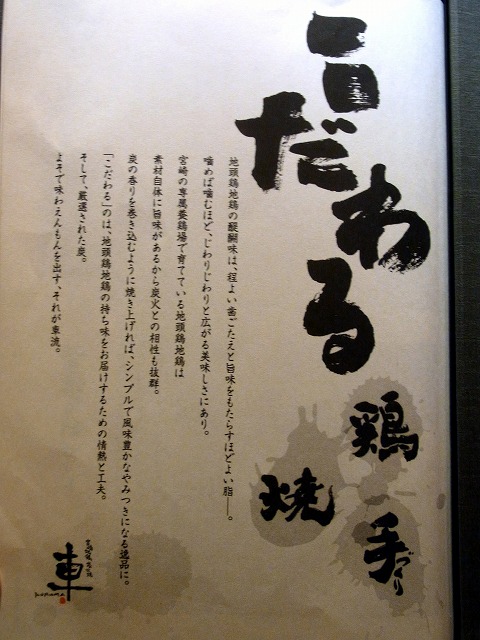 こだわる
鶏
焼
手づくり
地頭鶏地鶏の醍醐味は、程よい歯ごたえと旨味をもたらすほどよい脂―。
噛めば噛むほど、じわりじわりと広がる美味しさにあり。
宮崎の専属養鶏場で育てている地頭鶏地鶏は
素材自体に旨味があるから炭火との相性も抜群。
炭の香りを巻き込むように焼き上げれば、シンプルで風味豊かなやみつきになる逸品に。
「こだわる」のは、地頭鶏地鶏の持ち味をお届けするための情熱と工夫。
そして、厳選された炭。
よそで味わえんもんを出す、それが車流。
車